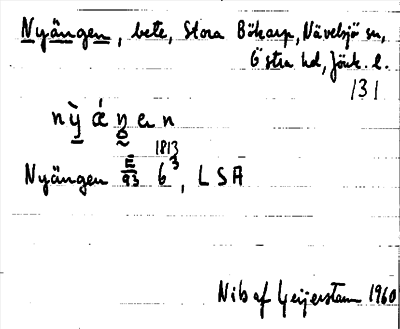 Nyängen, bete, Stora Bökarp, Nävelsjö sn,
Östra hd, Jönk. l.
131
Nyängen E 93 6 3 1813, LSA
Nils af Geijerstam 1960